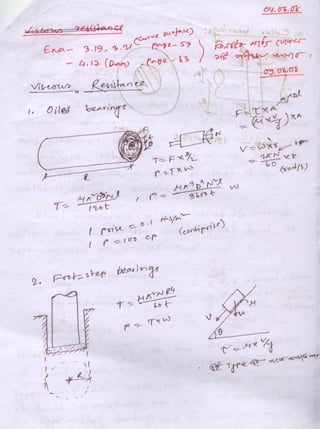 04.08.08
Viscous resistance
(curve surface)
Exa - 3.19, 3.21 Page - 59
- 4.12 (Dam) - Page - 63
09.08.08
Viscous Resistance
1. Oiled bearings
F = τ × A
= (μ × V/y) × A
V = ω × r
= 2πN/60 × r
(rad/s)
D
N
T = F × D/2
P = T × ω
l
T = μπ²D³Nl / 120t , P = μπ³D³N²l / 3600t W
1 poise = 0.1 Ns/m²
1 P = 100 cP (centipoise)
2. Foot-step bearings
T = μπ²NR⁴ / 60t
P = T × ω
V
W
θ
τ = μ × V/y
R
Type